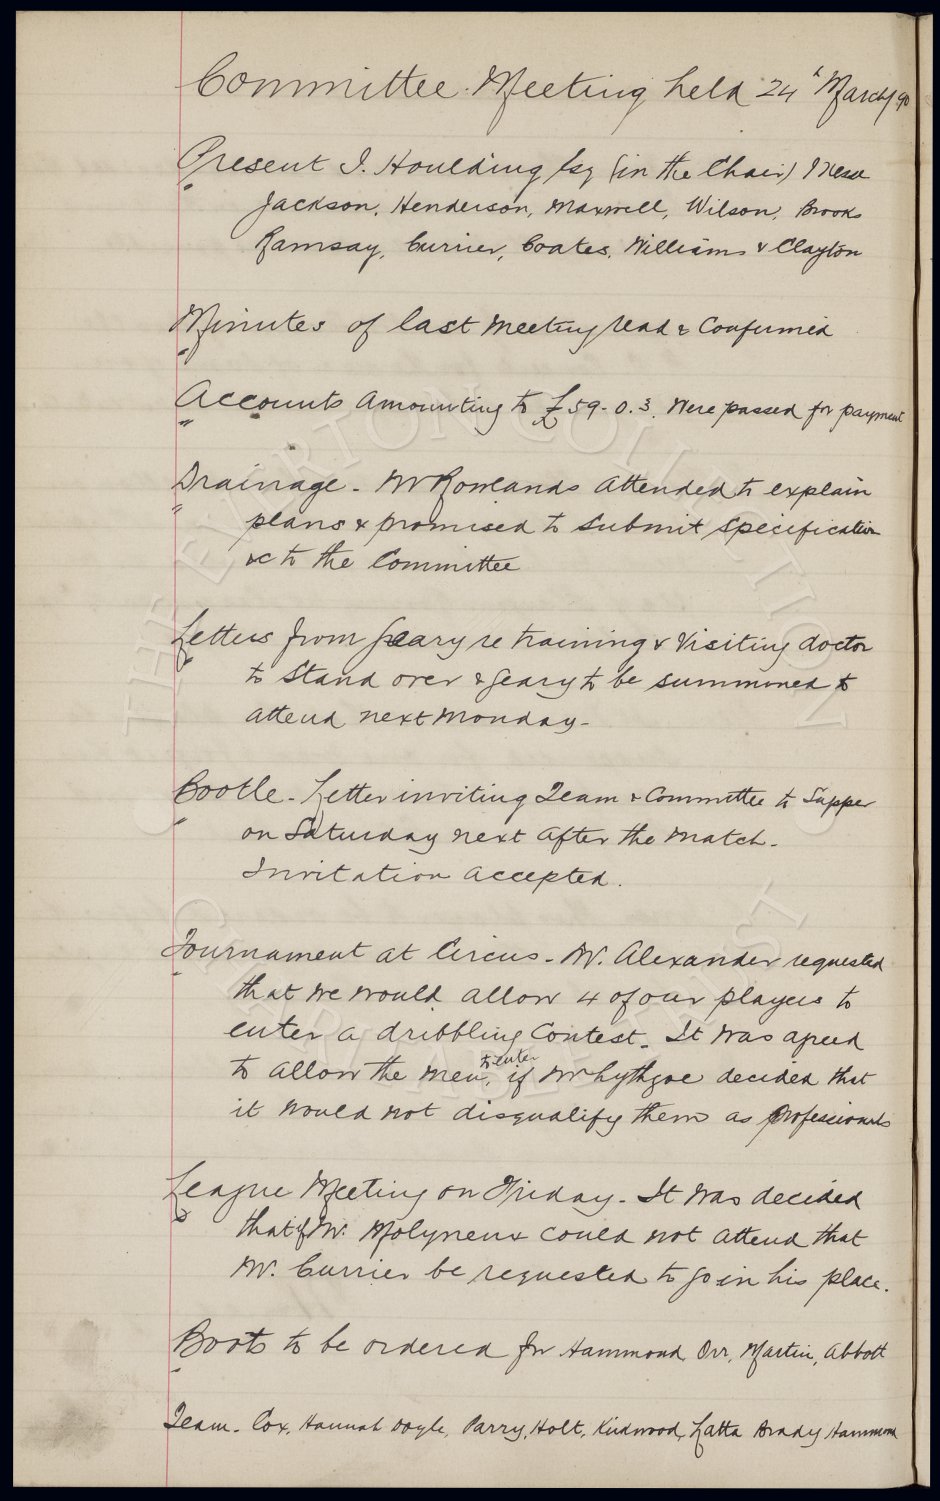 Committee Meeting held 24th March/90
Present J. Houlding Esq (in the Chair) Messrs
Jackson, Henderson, Maxwell, Wilson, Brooks
Ramsay, Currier, Coates, Williams & Clayton
Minutes of last Meeting read & Confirmed
Accounts Amounting to £59-0.3. Were passed for payment
Drainage - Mr Rowlands Attended to explain
plans & promised to Submit Specification
&c to the Committee
Letters from Geary re training & Visiting doctor
to Stand over & Geary to be summoned to
attend next Monday-
Bootle - Letter inviting Team & Committee to Supper
on Saturday next after the Match-
Invitation Accepted.
Tournament at Circus - Mr. Alexander requested
that we would allow 4 of our players to
enter a dribbling Contest - It was agreed
to allow the men, to enter if Mr Lythgoe decided that
it would not disqualify them as professionals
League Meeting on Friday - It was decided
that if Mr. Molyneux could not attend that
Mr. Currier be requested to go in his place.
Boots to be ordered for Hammond, Orr, Martin, Abbott
Team - Cox, Hannah Doyle, Parry, Holt, Kirkwood, Latta Brady Hammond
THE EVERTON COLLECTION
CHARITABLE TRUST